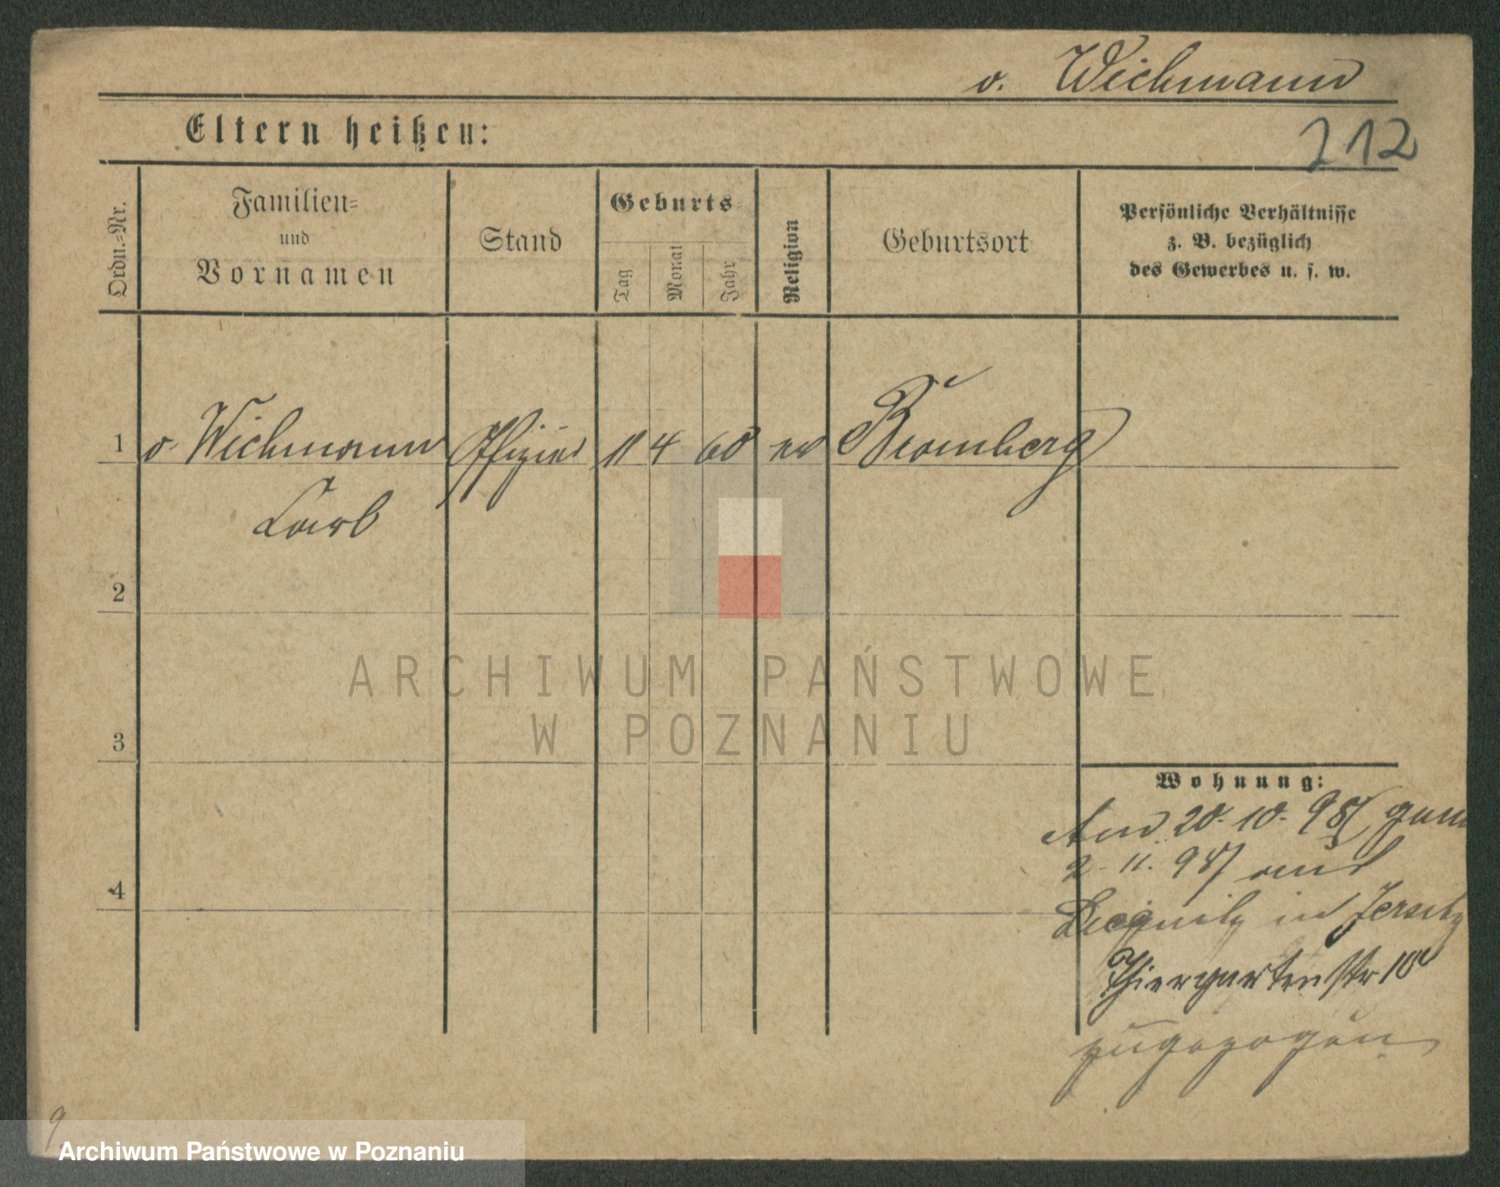 v. Wichmann
Eltern heißen:
212
Ordn.=Nr.
Familien=
und
Vornamen
Stand
Geburts
Tag
Monat
Jahr
Religion
Geburtsort
Persönliche Verhältnisse
z. B. bezüglich
des Gewerbes u. s. w.
1 v. Wichmann Offizier 11 4 60 ev Bromberg
Carl
2
ARCHIWUM PAŃSTWOWE
W POZNANIU
3
Wohnung:
Am 20. 10. 98 gem
2. 11. 98 aus
Liegnitz in Jersitz
4
Thiergartenstr 10
zugezogen
9
Archiwum Państwowe w Poznaniu